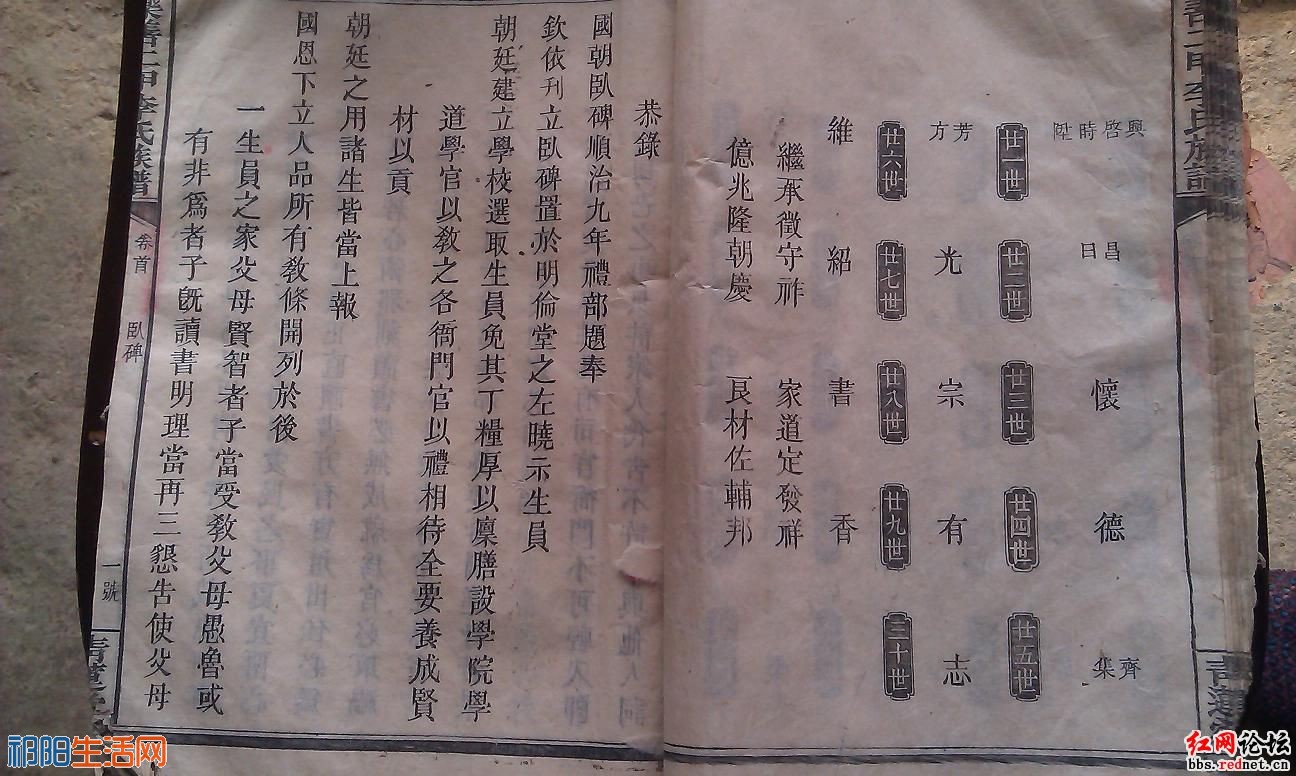 興啓時陞
昌日
懷
德
齊集
廿一世
廿二世
廿三世
廿四世
廿五世
芳方
光
宗
有
志
廿六世
廿七世
廿八世
廿九世
三十世
維
紹
書
香
繼承徵守祚 家道定發祥
億兆隆朝慶 良材佐輔邦
恭錄
國朝臥碑順治九年禮部題奉
欽依刊立臥碑置於明倫堂之左曉示生員
朝廷建立學校選取生員免其丁糧厚以廩膳設學院學
道學官以敎之各衙門官以禮相待全要養成賢
材以貢
朝廷之用諸生皆當上報
國恩下立人品所有敎條開列於後
一生員之家父母賢智者子當受敎父母愚魯或
有非爲者子旣讀書明理當再三懇吿使父母
二甲李氏族譜
卷首
臥碑
一號
祁阳生活网
红网论坛
bbs.rednet.cn